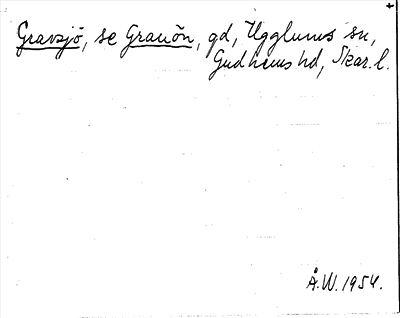 Gravsjö, se Grauön, gd, Ugglums sn,
Gudhems hd, Skar. l.
Å.W. 1954.